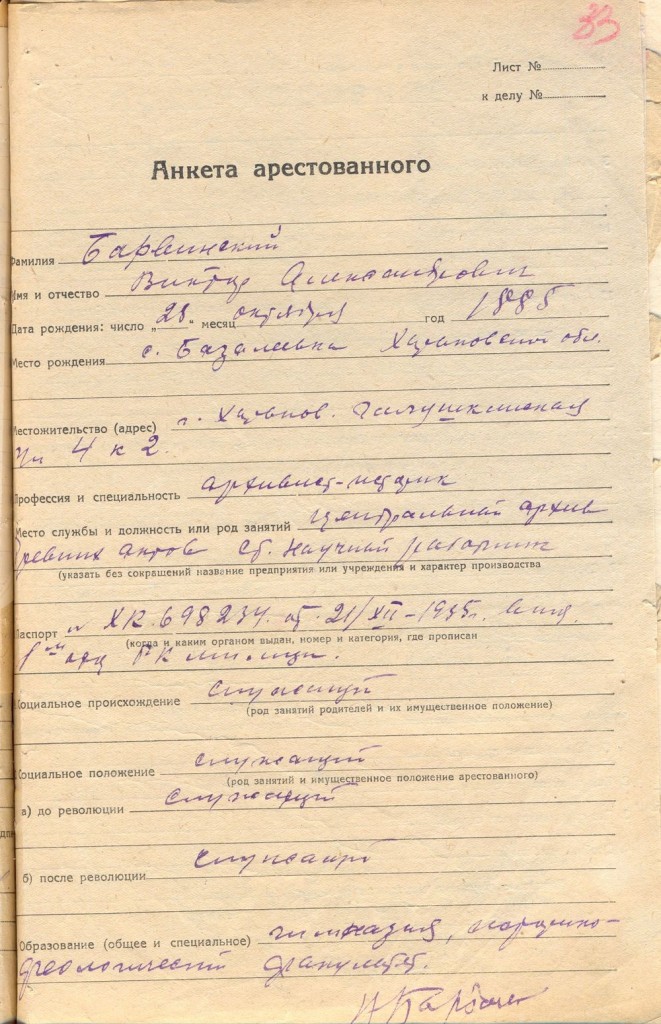 33
Лист №
к делу №
Анкета арестованного
Фамилия Барвинский
Имя и отчество Виктор Александрович
Дата рождения: число „28" месяц октября год 1885
Место рождения с. Базалеевка Харьковской обл.
Местожительство (адрес) г. Харьков.
4 к 2
Профессия и специальность архивист-историк
Место службы и должность или род занятий Центральный архив
древних актов ст. научный работник
(указать без сокращений название предприятия или учреждения и характер производства
Паспорт № ХК. 698234. от 21/XII-1935г. выд.
(когда и каким органом выдан, номер и категория, где прописан
1ым отд милиции.
Социальное происхождение служащий
(род занятий родителей и их имущественное положение)
Социальное положение служащий
(род занятий и имущественное положение арестованного)
а) до революции служащий
б) после революции служащий
Образование (общее и специальное) гимназия, историко-
филологический факультет.